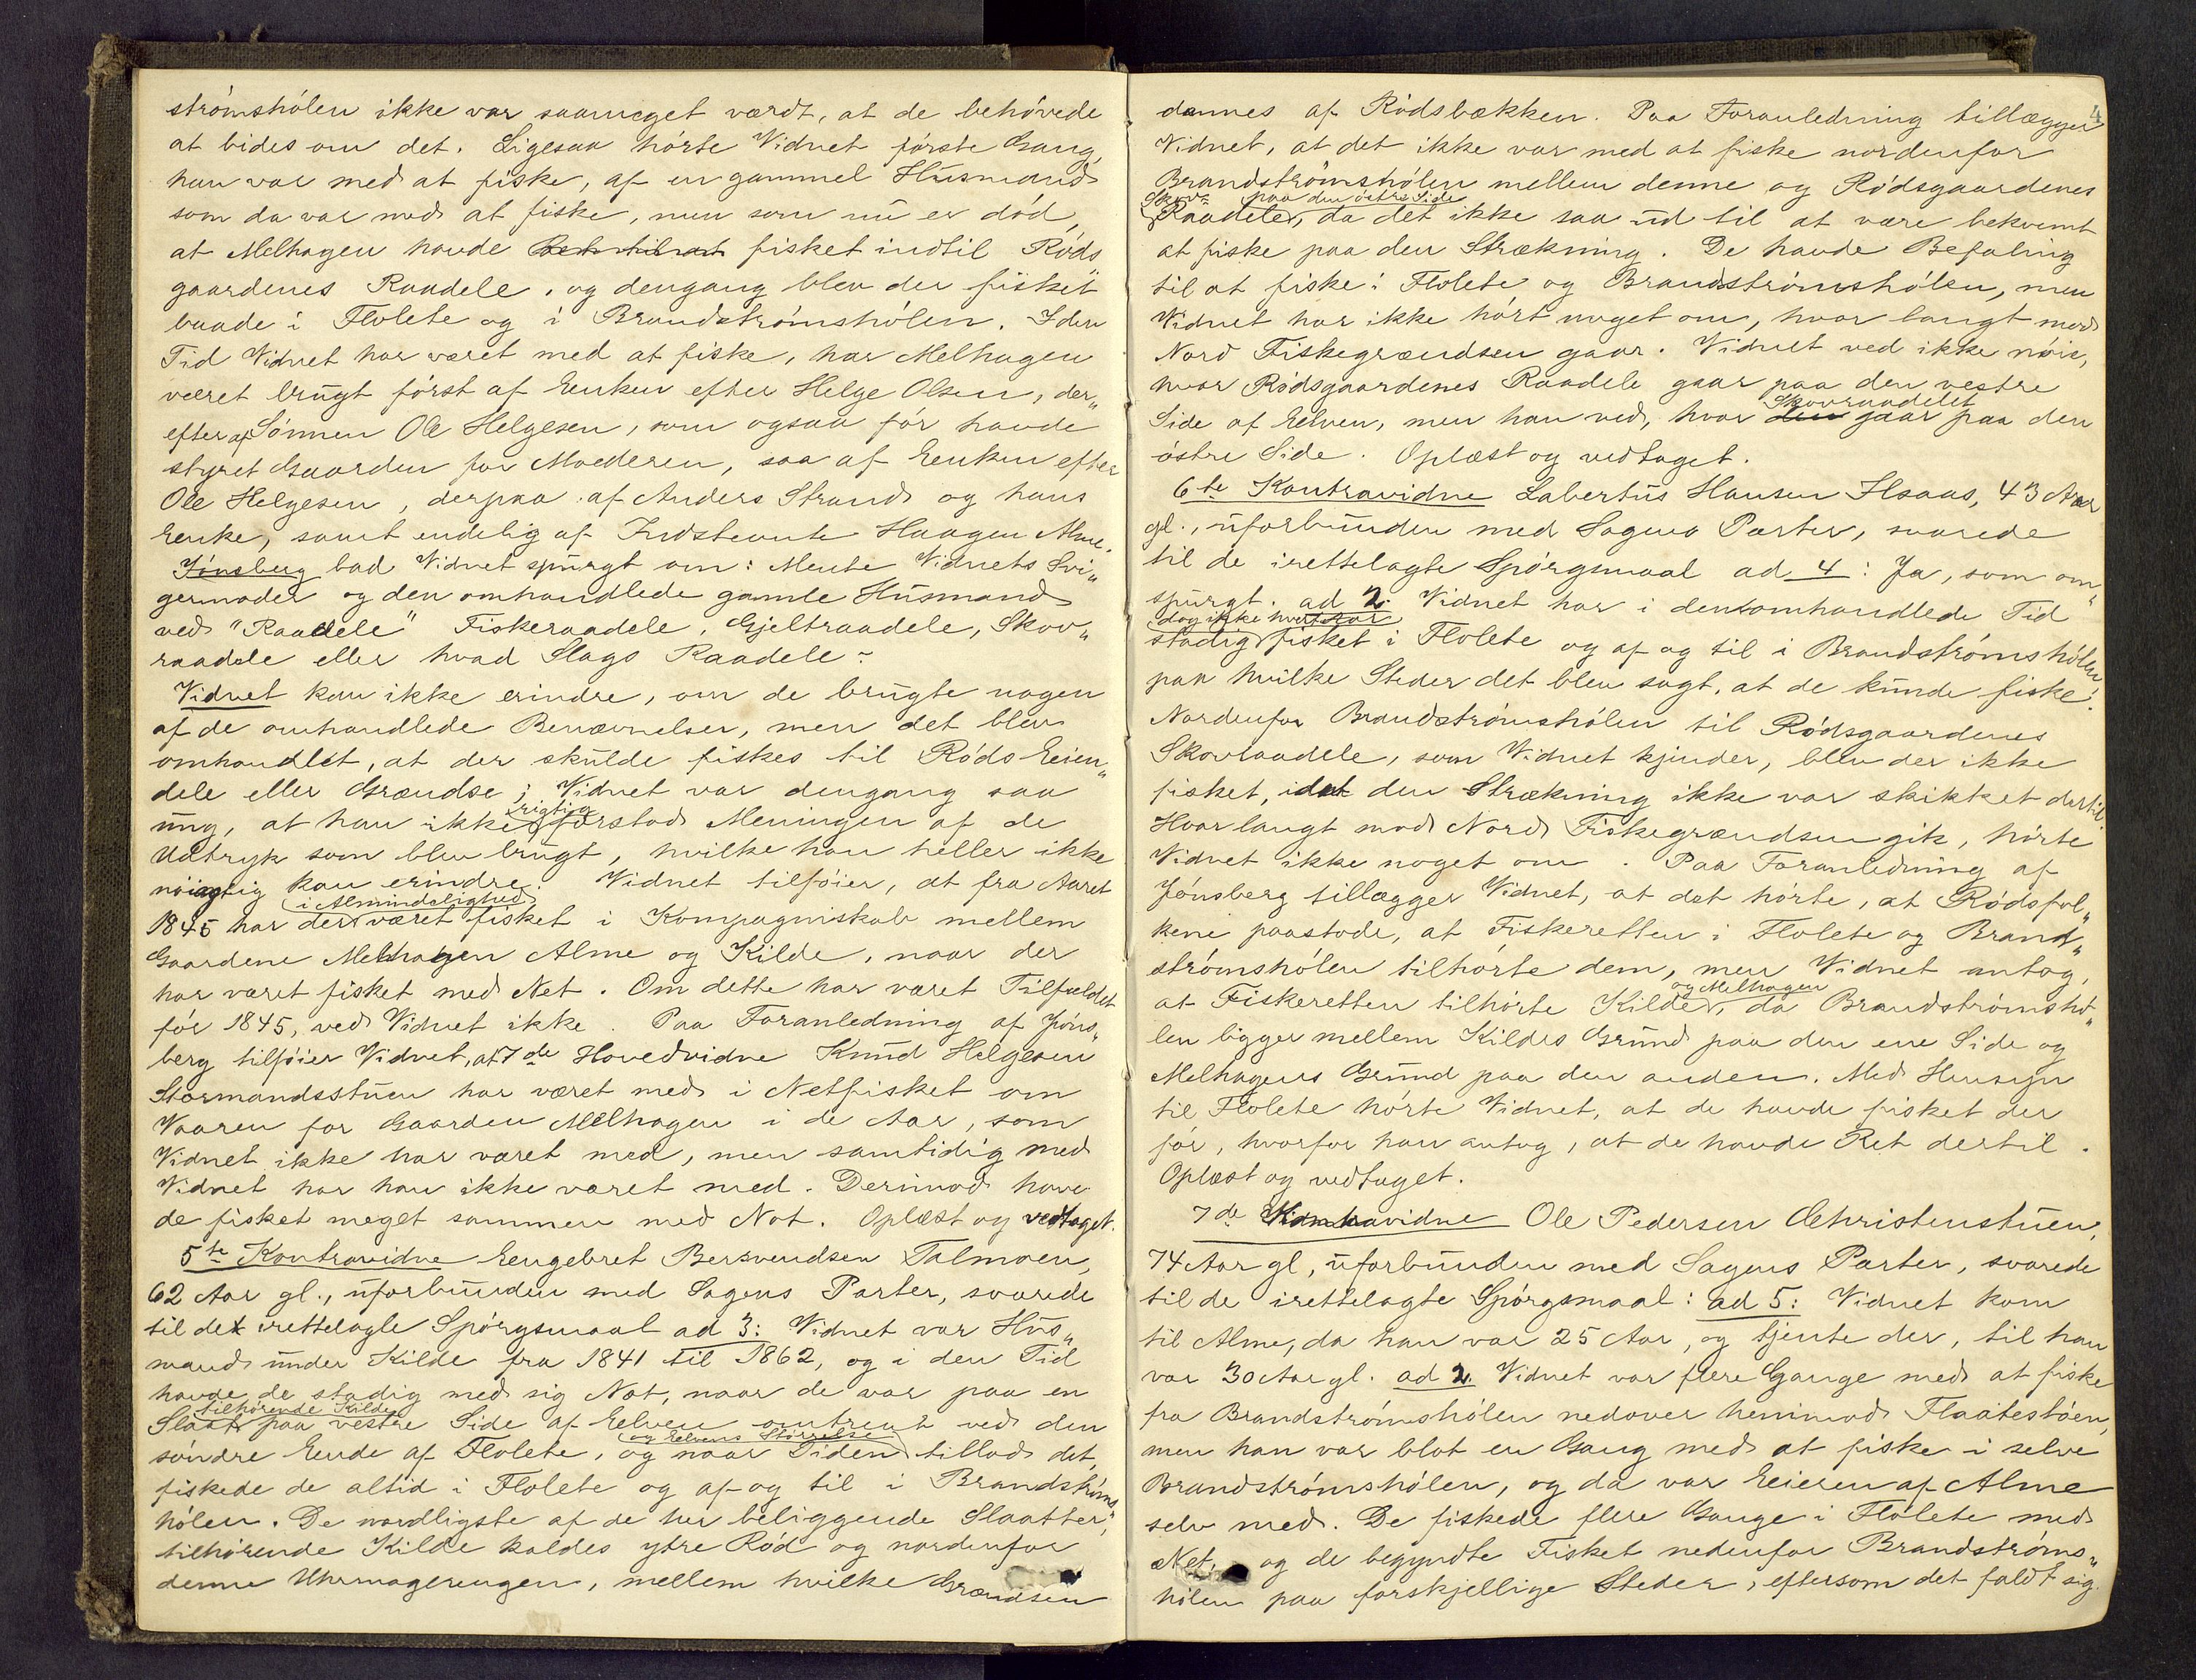 strømshølen ikke var saameget værdt, at de behøvede
at bides om det. Ligesaa hørte Vidnet første Gang,
han var med at fiske, af en gammel Husmand
som da var med at fiske, men som nu er død,
at Melhagen havde fisket indtil Røds
gaardenes Raadele, og dengang blev der fisket
baade i Flolete og i Brandstrømshølen. I den
Tid Vidnet har været med at fiske, har Melhagen
været brugt først af Enken efter Helge Olsen, der„
efter af Sønnen Ole Helgesen, som ogsaa før havde
styret Gaarden for Moderen, saa af Enken efter
Ole Helgesen, derpaa af Anders Strand og hans
Enke, samt endelig af Indstevnte Haagen Alme.
Jønsberg bad Vidnet spurgt om: Mente Vidnets Svi„
germoder og den omhandlede gamle Husmand
ved "Raadele" Fiskeraadele, Gjeltraadele, Skov„
raadele eller hvad Slags Raadele?
Vidnet kan ikke erindre, om de brugte nogen
af de omhandlede Benævnelser, men det blev
omhandlet, at der skulde fiskes til Røds Eien„
dele eller Grændse; Vidnet var dengang saa
rigtig
ung, at han ikke forstod Meningen af de
Udtryk som blev brugt, hvilke han heller ikke
nøiagtig kan erindre. Vidnet tilføier, at fra Aaret
i Almindelighed
1845 har der været fisket i Kompagniskab mellem
Gaardene Melhagen Alme og Kilde, naar der
har været fisket med Not. Om dette har været Tilfældet
før 1845, ved Vidnet ikke. Paa Foranledning af Jøns„
berg tilføier Vidnet, at 7de Hovedvidne Knud Helgesen
Stormandsstuen har været med i Notfisket om
Vaaren for Gaarden Melhagen i de Aar, som
Vidnet ikke har været med, men samtidig med
Vidnet har han ikke været med. Derimod hav
de fisket meget sammen med Not. Oplæst og vedtaget.
5te Kontravidne Engebret Bersvendsen Talmoen,
62 Aar gl., uforbunden med Sagens Parter, svarede
til det irettelagte Spørgsmaal ad 3: Vidnet var Hus„
mand under Kilde fra 1841 til 1862, og i den Tid
havde de stadig med sig Not, naar de var paa en
tilhørende Kilde
Slaat paa vestre Side af Eelven omtrent ved den
og Eelvens Størrelse
søndre Ende af Flolete, og naar Tiden tillod det,
fiskede de altid i Flolete og af og til i Brandstrøms
hølen. De nordligste af de her beliggende Slaatter,
tilhørende Kilde kaldes ytre Rød og nordenfor
denne Uhrmagerengen, mellem hvilke Grændsen
4
dannes af Rødsbækken. Paa Foranledning tillægger
Vidnet, at det ikke var med at fiske nordenfor
Brandstrømshølen mellem denne og Rødsgaardenes
Skov- paa den østre Side
Raadele, da det ikke saa ud til at være bekvemt
at fiske paa den Strækning. De havde Befaling
til at fiske i Flolete og Brandstrømshølen, men
Vidnet har ikke hørt noget om, hvor langt mod
Nord Fiskegrændsen gaar. Vidnet ved ikke nøie,
hvor Rødsgaardenes Raadele gaar paa den vestre
Skovraadelet
Side af Eelven, men han ved, hvor gaar paa den
østre Side. Oplæst og vedtaget.
6te Kontravidne Labertus Hansen Ilsaas, 43 Aar
gl., uforbunden med Sagens Parter, svarede
til de irettelagte Spørgsmaal ad 4: Ja, som om„
spurgt. ad 2. Vidnet har i den omhandlede Tid
dog ikke hvert Aar
stadig fisket i Flolete og af og til i Brandstrømshølen
paa hvilke Steder det blev sagt, at de kunde fiske.
Nordenfor Brandstrømshølen til Rødsgaardenes
Skovraadele, som Vidnet kjender, blev der ikke
fisket, idet den Strækning ikke var skikket dertil.
Hvor langt mod Nord Fiskegrændsen gik, hørte
Vidnet ikke noget om. Paa Foranledning af
Jønsberg tillægger Vidnet, at det hørte, at Rødsfol„
kene paastode, at Fiskeretten i Flolete og Brand„
strømshølen tilhørte dem, men Vidnet antog,
og Melhagen
at Fiskeretten tilhørte Kilde, da Brandstrømshø„
len ligger mellem Kildes Grund paa den ene Side og
Melhagens Grund paa den anden. Med Hensyn
til Flolete hørte Vidnet, at de havde fisket der
før, hvorfor han antog, at de havde Ret dertil.
Oplæst og vedtaget.
7de Kontravidne Ole Pedersen Christenstuen,
74 Aar gl, uforbunden med Sagens Parter, svarede
til de irettelagte Spørgsmaal: ad 5: Vidnet kom
til Alme, da han var 25 Aar, og tjente der, til han
var 30 Aar gl. ad 2. Vidnet var flere Gange med at fiske
fra Brandstrømshølen nedover henimod Flaatestøen,
men han var blot en Gang med at fiske i selve
Brandstrømshølen, og da var Eieren af Alme
selv med. De fiskede flere Gange i Flolete med
Not, og de begyndte Fisket nedenfor Brandstrøms„
hølen paa forskjellige Steder, eftersom det faldt sig.